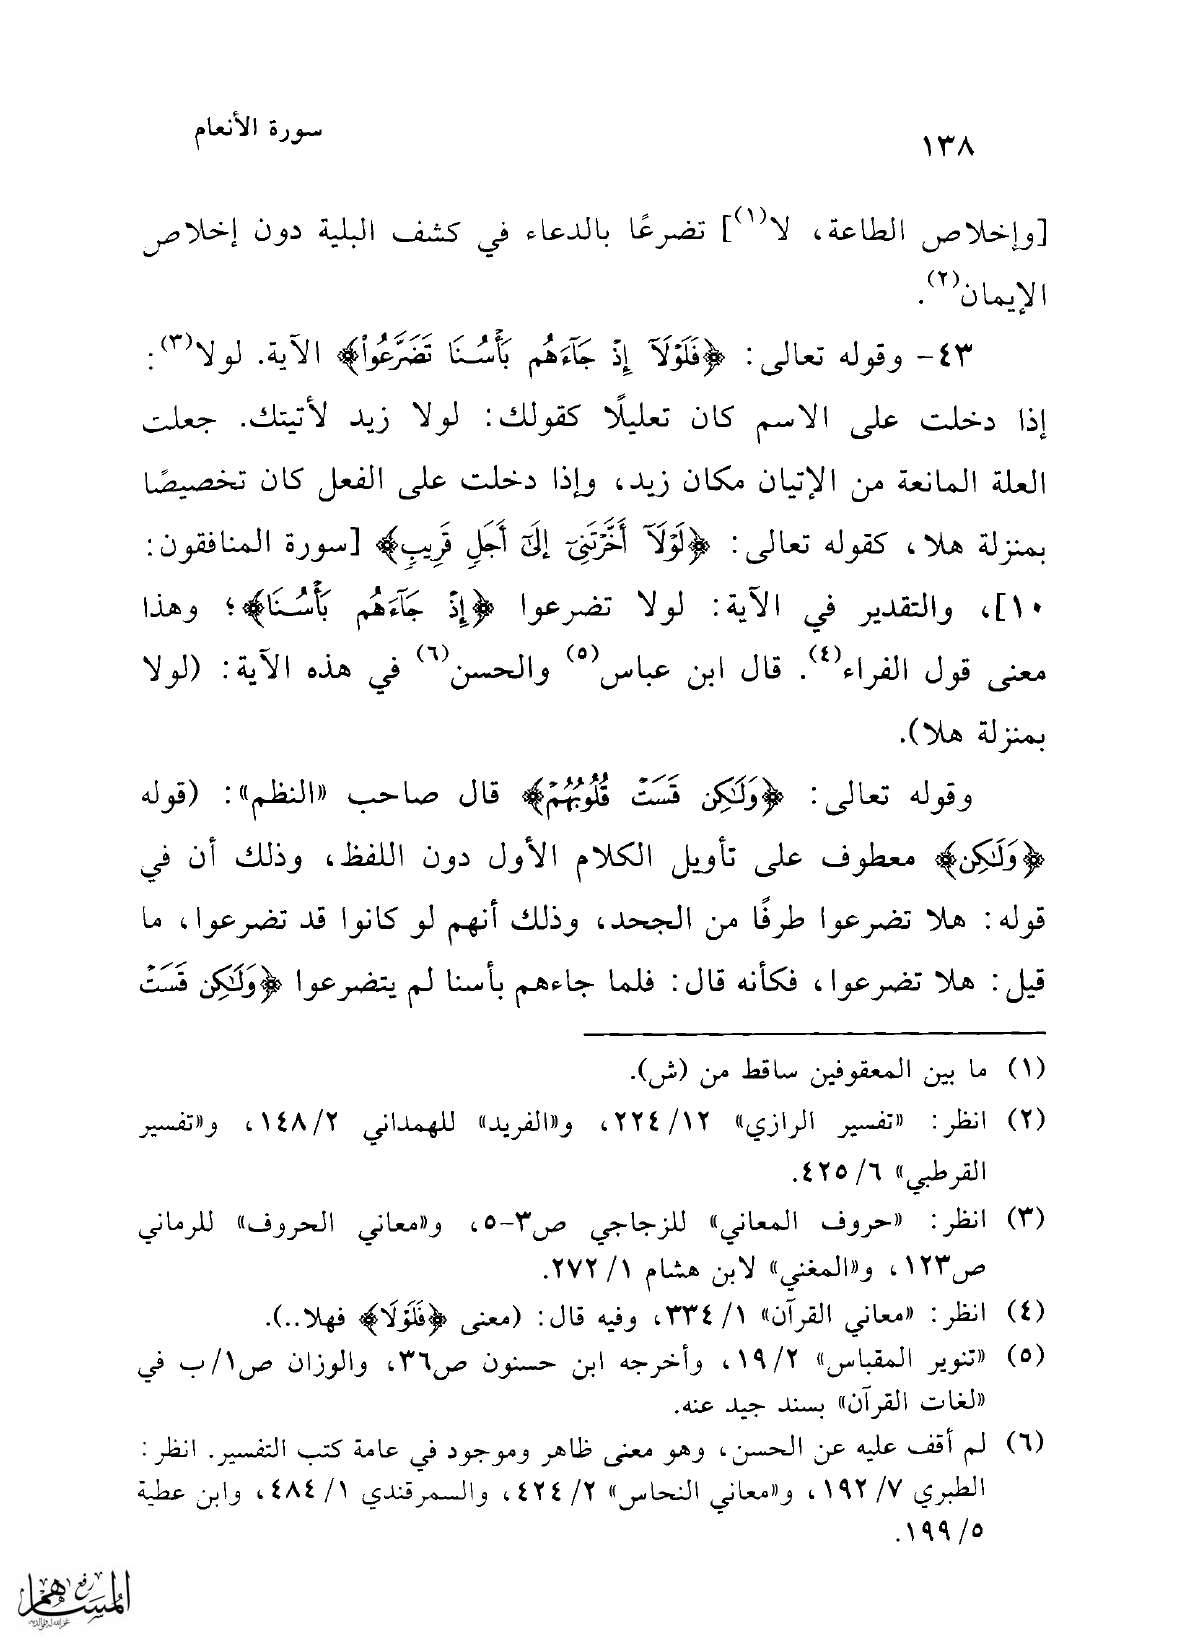 ١٣٨
سورة الأنعام
[وإخلاص الطاعة، لا(١)] تضرعًا بالدعاء في كشف البلية دون إخلاص
الإيمان(٢).
٤٣- وقوله تعالى: ﴿فَلَوْلَآ إِذْ جَآءَهُم بَأْسُنَا تَضَرَّعُوا۟﴾ الآية. لولا(٣):
إذا دخلت على الاسم كان تعليلًا كقولك: لولا زيد لأتيتك. جعلت
العلة المانعة من الإتيان مكان زيد، وإذا دخلت على الفعل كان تخصيصًا
بمنزلة هلا، كقوله تعالى: ﴿لَوْلَآ أَخَّرْتَنِىٓ إِلَىٰٓ أَجَلٍ قَرِيبٍ﴾ [سورة المنافقون:
١٠]، والتقدير في الآية: لولا تضرعوا ﴿إِذْ جَآءَهُم بَأْسُنَا﴾؛ وهذا
معنى قول الفراء(٤). قال ابن عباس(٥) والحسن(٦) في هذه الآية: (لولا
بمنزلة هلا).
وقوله تعالى: ﴿وَلَٰكِن قَسَتْ قُلُوبُهُمْ﴾ قال صاحب «النظم»: (قوله
﴿وَلَٰكِن﴾ معطوف على تأويل الكلام الأول دون اللفظ، وذلك أن في
قوله: هلا تضرعوا طرفًا من الجحد، وذلك أنهم لو كانوا قد تضرعوا، ما
قيل: هلا تضرعوا، فكأنه قال: فلما جاءهم بأسنا لم يتضرعوا ﴿وَلَٰكِن قَسَتْ
(١) ما بين المعقوفين ساقط من (ش).
(٢) انظر: «تفسير الرازي» ١٢/ ٢٢٤، و«الفريد» للهمداني ٢/ ١٤٨، و«تفسير
القرطبي» ٦/ ٤٢٥.
(٣) انظر: «حروف المعاني» للزجاجي ص٣-٥، و«معاني الحروف» للرماني
ص١٢٣، و«المغني» لابن هشام ١/ ٢٧٢.
(٤) انظر: «معاني القرآن» ١/ ٣٣٤، وفيه قال: (معنى ﴿فَلَوْلَا﴾ فهلا..).
(٥) «تنوير المقباس» ٢/ ١٩، وأخرجه ابن حسنون ص٣٦، والوزان ص١/ ب في
«لغات القرآن» بسند جيد عنه.
(٦) لم أقف عليه عن الحسن، وهو معنى ظاهر وموجود في عامة كتب التفسير. انظر:
الطبري ٧/ ١٩٢، و«معاني النحاس» ٢/ ٤٢٤، والسمرقندي ١/ ٤٨٤، وابن عطية
٥/ ١٩٩.